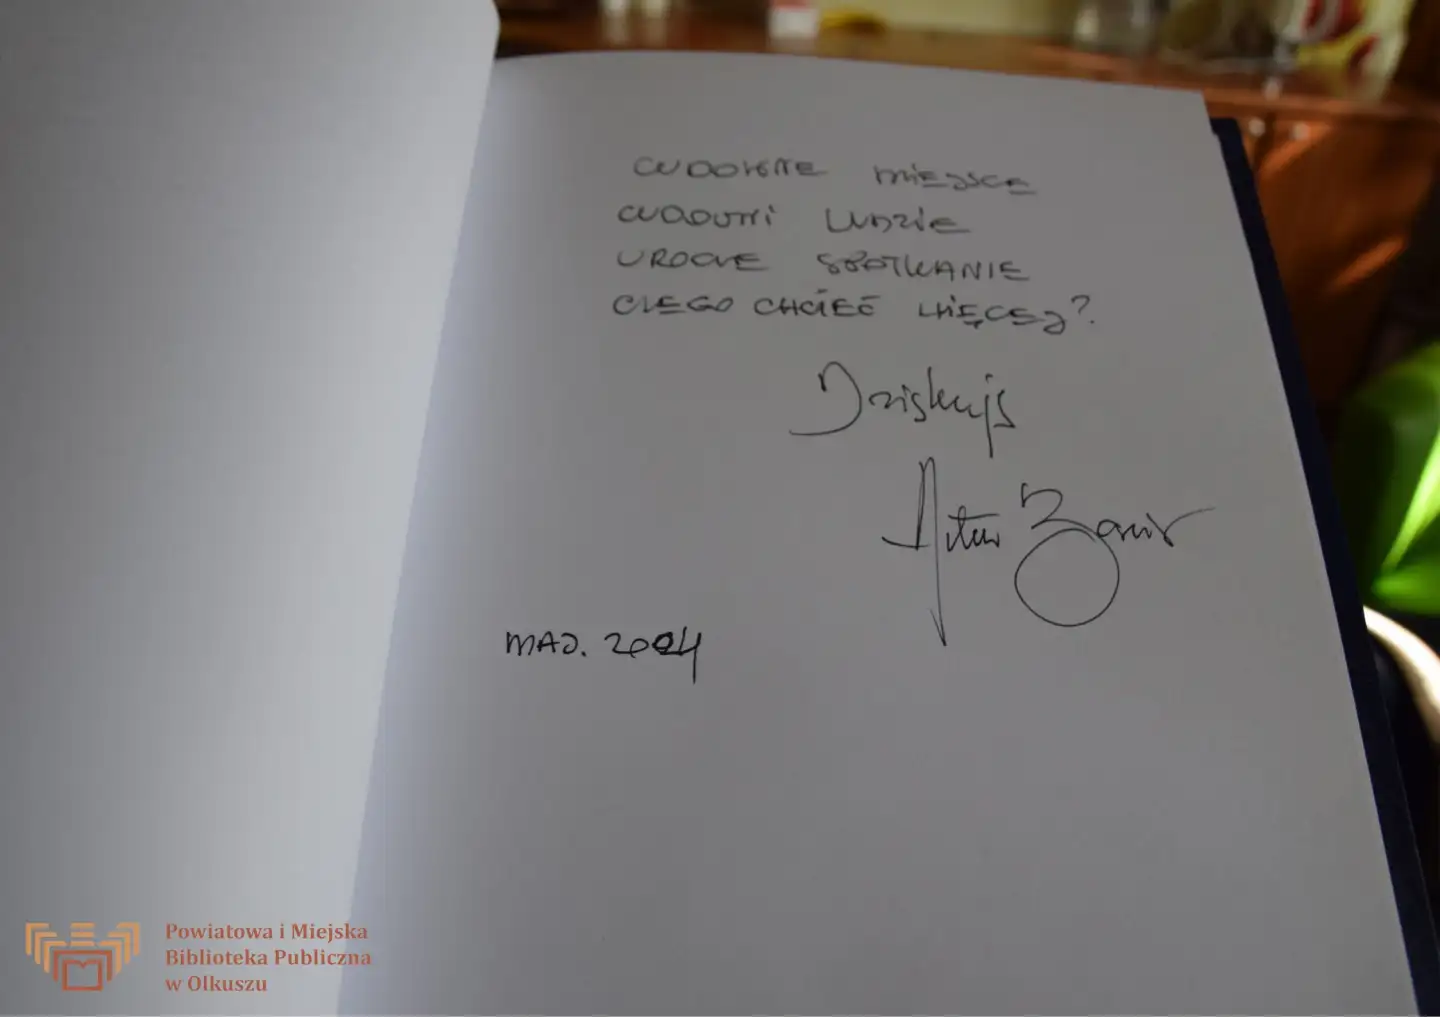 CUDOWNE MIEJSCE
CUDOWNI LUDZIE
UROCZE SPOTKANIE
CZEGO CHCIEĆ WIĘCEJ?
Dziękuję
Artur
MAJ. 2024
Powiatowa i Miejska
Biblioteka Publiczna
w Olkuszu